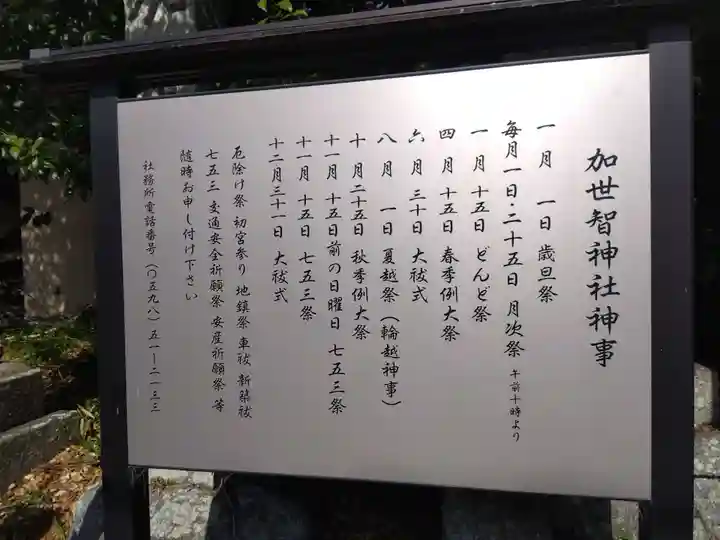 加世智神社神事
一月 一日 歳旦祭
毎月一日・二十五日 月次祭 午前十時より
一月 十五日 どんど祭
四月 十五日 春季例大祭
六月 三十日 大祓式
八月 一日 夏越祭(輪越神事)
十月 二十五日 秋季例大祭
十一月 十五日前の日曜日 七五三祭
十一月 十五日 七五三祭
十二月 三十一日 大祓式
厄除け祭 初宮参り 地鎮祭 車祓 新築祓
七五三 交通安全祈願祭 安産祈願祭 等
随時お申し付け下さい
社務所電話番号(〇五九八)五一ー二一三三